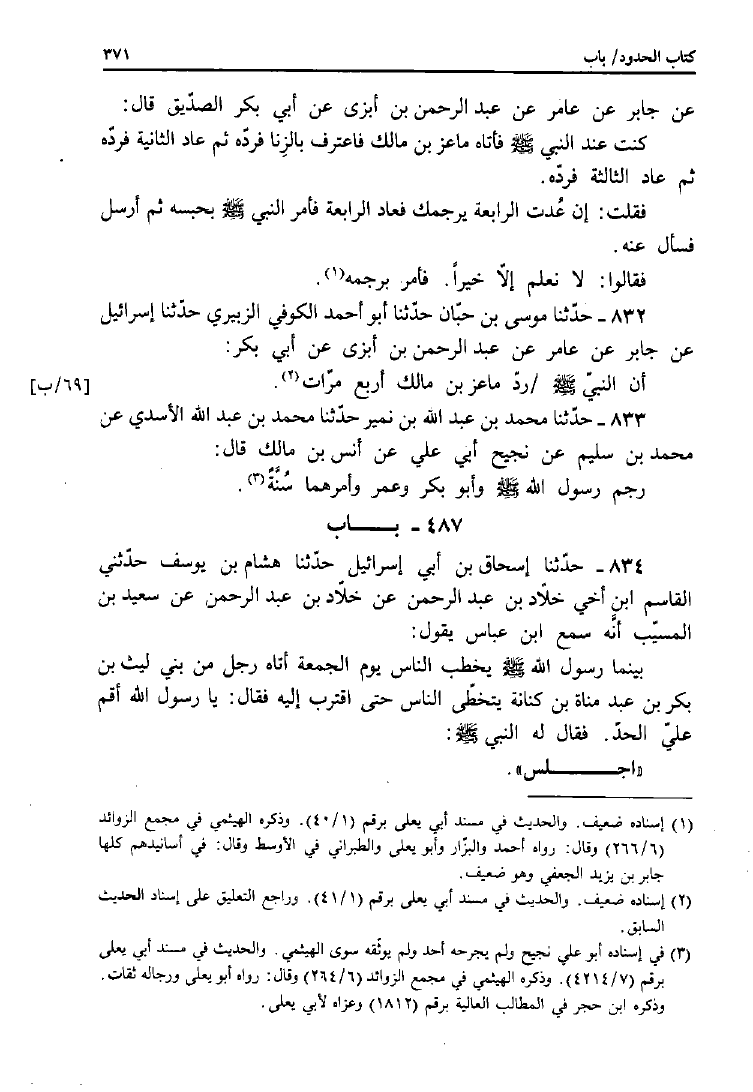 كتاب الحدود/ باب ٣٧١
عن جابر عن عامر عن عبد الرحمن بن أبزى عن أبي بكر الصدّيق قال:
كنت عند النبي ﷺ فأتاه ماعز بن مالك فاعترف بالزنا فردّه ثم عاد الثانية فردّه
ثم عاد الثالثة فردّه.
فقلت: إن عُدت الرابعة يرجمك فعاد الرابعة فأمر النبي ﷺ بحبسه ثم أرسل
فسأل عنه.
فقالوا: لا نعلم إلّا خيراً. فأمر برجمه(١).
٨٣٢ ـ حدّثنا موسى بن حبّان حدّثنا أبو أحمد الكوفي الزبيري حدّثنا إسرائيل
عن جابر عن عامر عن عبد الرحمن بن أبزى عن أبي بكر:
أن النبيّ ﷺ /ردّ ماعز بن مالك أربع مرّات(٢). [٦٩/ب]
٨٣٣ ـ حدّثنا محمد بن عبد الله بن نمير حدّثنا محمد بن عبد الله الأسدي عن
محمد بن سليم عن نجيح أبي علي عن أنس بن مالك قال:
رجم رسول الله ﷺ وأبو بكر وعمر وأمرهما سُنَّةٌ(٣).
٤٨٧ ـ بـــاب
٨٣٤ ـ حدّثنا إسحاق بن أبي إسرائيل حدّثنا هشام بن يوسف حدّثني
القاسم ابن أخي خلّاد بن عبد الرحمن عن خلّاد بن عبد الرحمن عن سعيد بن
المسيّب أنَّه سمع ابن عباس يقول:
بينما رسول الله ﷺ يخطب الناس يوم الجمعة أتاه رجل من بني ليث بن
بكر بن عبد مناة بن كنانة يتخطّى الناس حتى اقترب إليه فقال: يا رسول الله أقم
عليّ الحدّ. فقال له النبي ﷺ:
«اجـــــلس».
(١) إسناده ضعيف. والحديث في مسند أبي يعلى برقم (٤٠/١). وذكره الهيثمي في مجمع الزوائد
(٢٦٦/٦) وقال: رواه أحمد والبزّار وأبو يعلى والطبراني في الأوسط وقال: في أسانيدهم كلها
جابر بن يزيد الجعفي وهو ضعيف.
(٢) إسناده ضعيف. والحديث في مسند أبي يعلى برقم (٤١/١). وراجع التعليق على إسناد الحديث
السابق.
(٣) في إسناده أبو علي نجيح ولم يجرحه أحد ولم يوثّقه سوى الهيثمي. والحديث في مسند أبي يعلى
برقم (٤٢١٤/٧). وذكره الهيثمي في مجمع الزوائد (٢٦٤/٦) وقال: رواه أبو يعلى ورجاله ثقات.
وذكره ابن حجر في المطالب العالية برقم (١٨١٢) وعزاه لأبي يعلى.